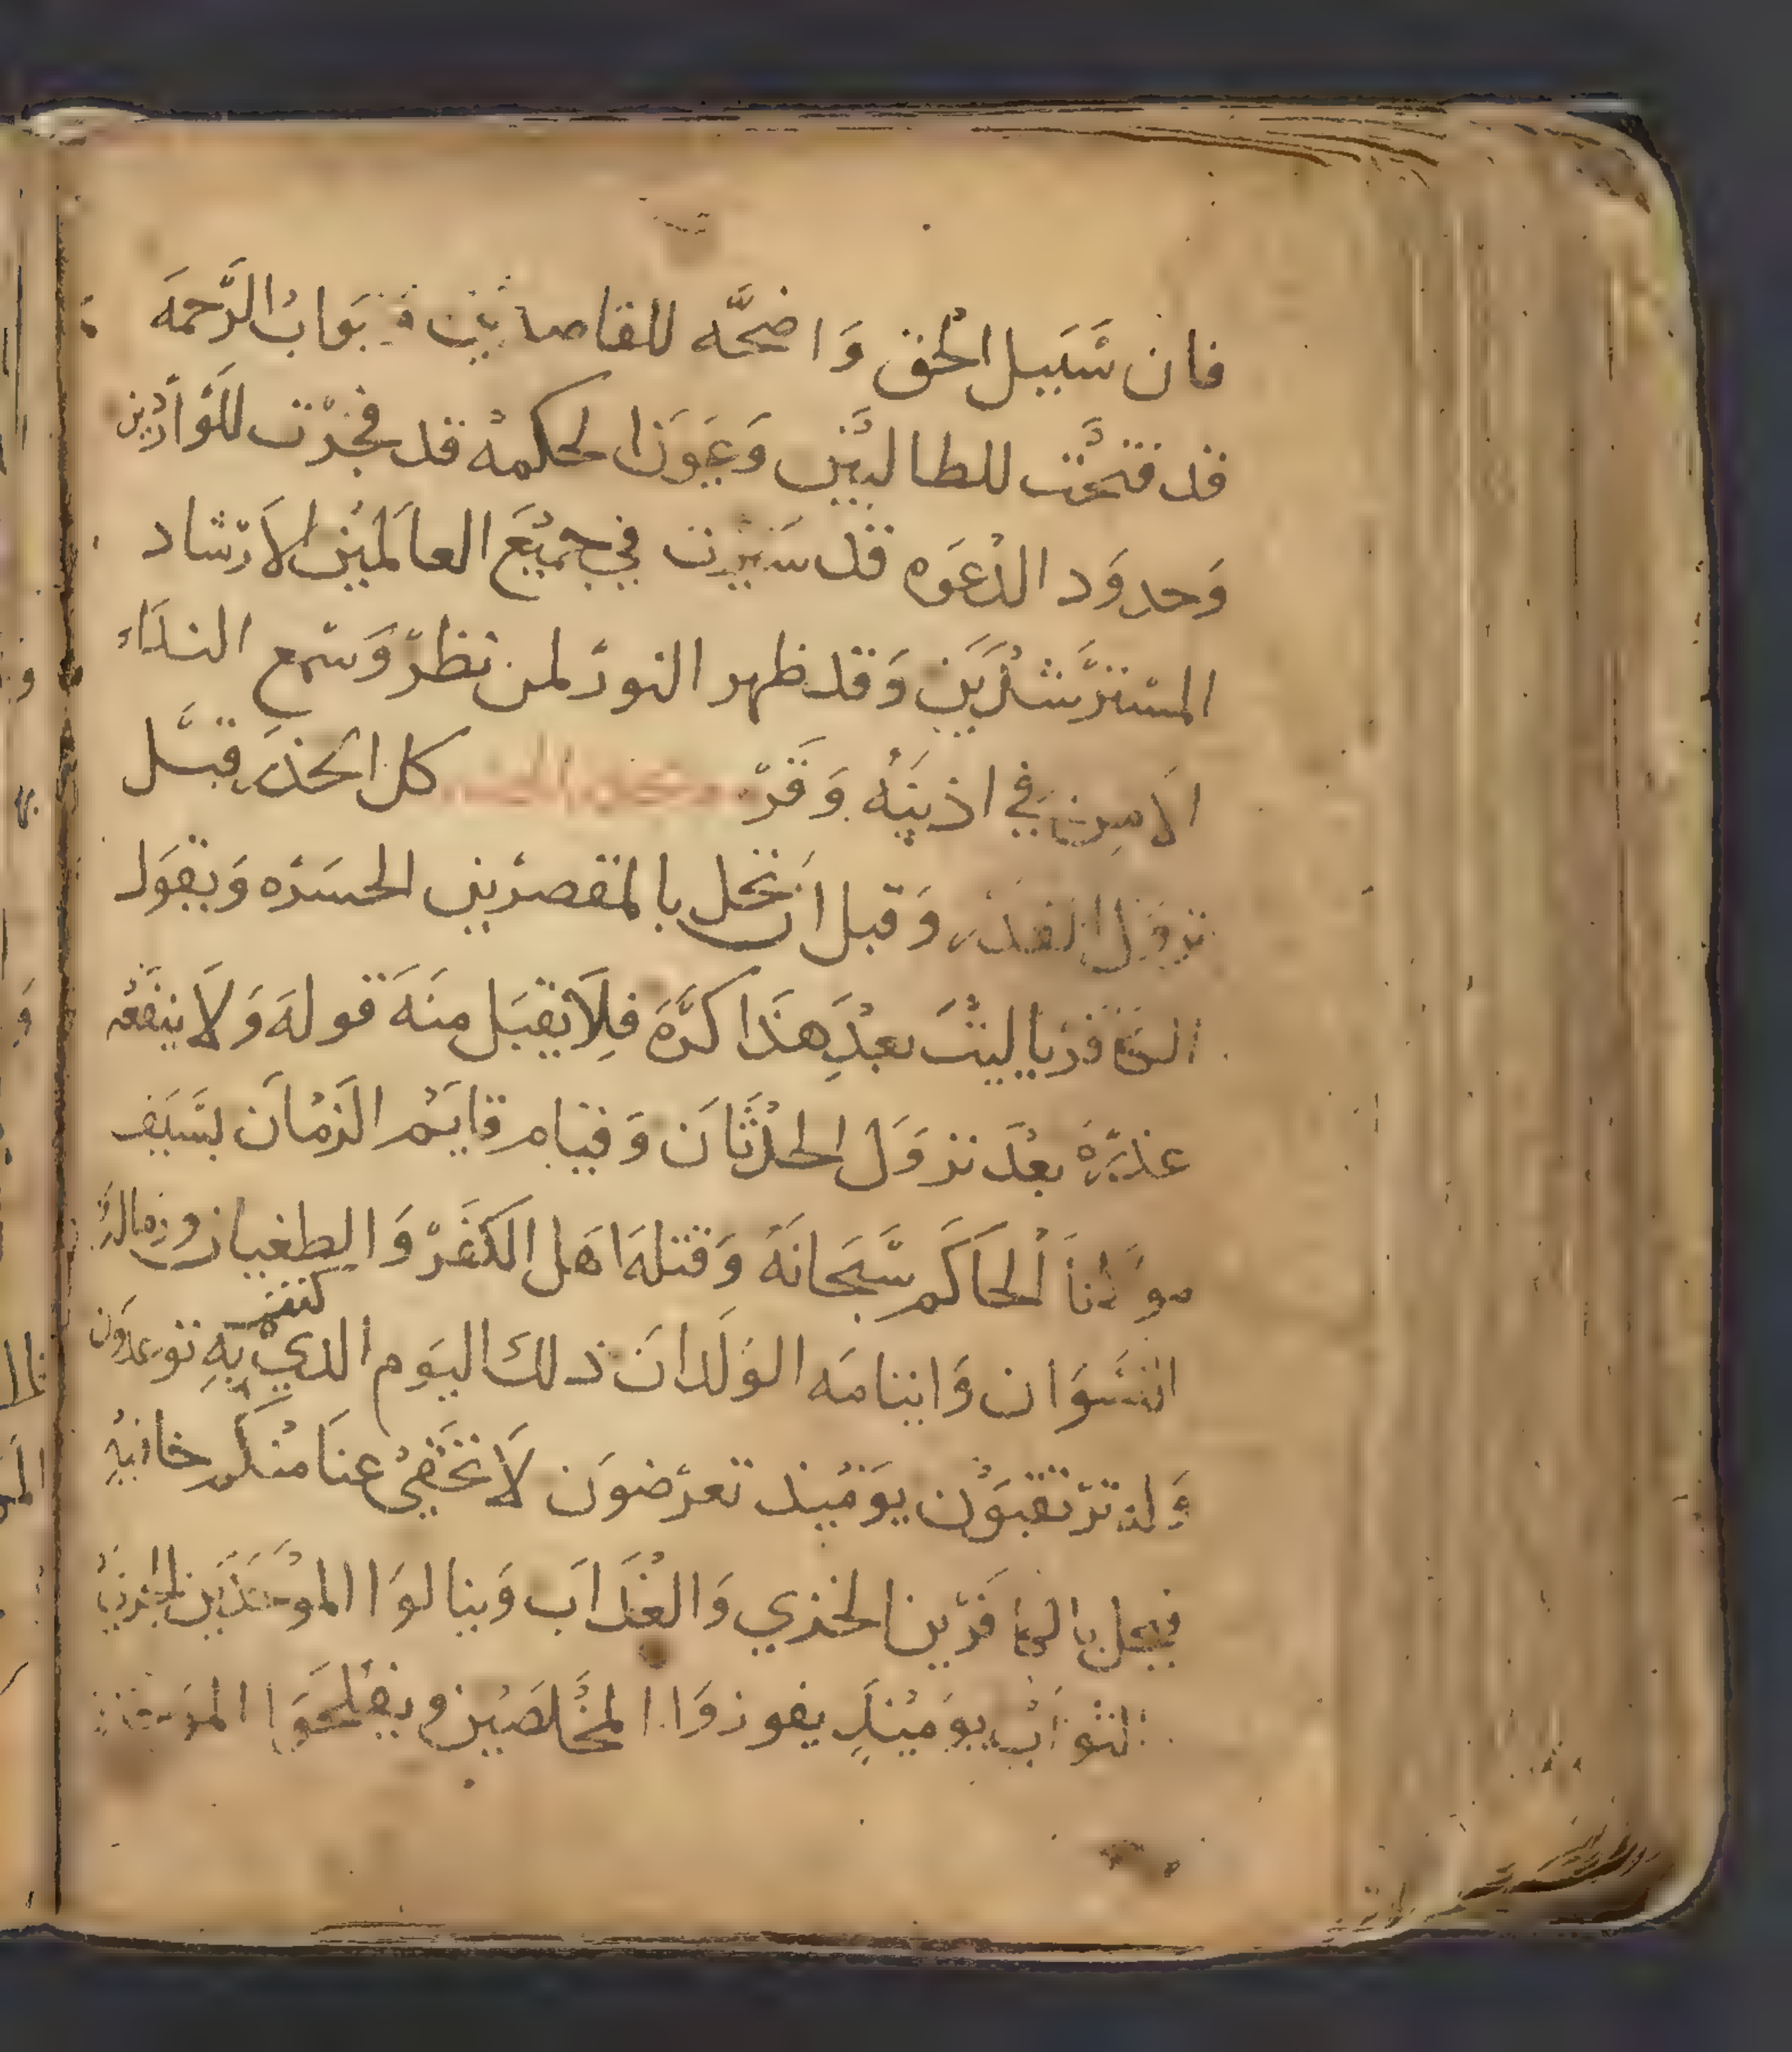 فان سَبَيل الحق وَاضحَّه للقاصدين وَابوَابُ الرَّحمَه
قد فتحَّت للطالبيَّن وَعيَوَن الحكمهُ قد فجرّت للوَّاردّين
وَحدوَد الدْعَوَه قد سَيرت في جميْعَ العالميْن لارّشاد
المسّترَّشدَيَن وَقد ظهر النورّ لمن نظرّ وَسّمع الندَاء
الامين في اذنيَهُ وَقرّ كل الحذَر قبَّل
نزوَل القدر وَقبل ان تحَل بالمقصرّين الحسَرْه وَيقوَل
الكافرْ يا ليتْ بعدِ هذَا كرَّة فلِاَ يقبَل منَهَ قولهَ وَلاَ ينفَعْه
عذرّهُ بعدَ نزوَل الحدْثَاَن وَقيام قايَمْ الزَمْاَن بسَيَف
مولانا الحاَكَم سَّبحَانَهُ وَقتلهَ اهَل الكَفَرّ وَالطغيان وزماله
النسَوَان وَايتامَه الوَلَداَن ذلكَ اليوَم الدي كنتم بِهِ توعدَون
وَله ترْتقبوَْن يوَميْذ تعرّضوَن لاَ تخَفىْ عنَا منكم خافيهِ
فيحل بالكافَرّين الخزي وَالعْذَاَب وَينالوَا الموَحَدَين الجزيل
الثوَابْ يوَميْذِ يفوزوَا المخّلصَيْن ويفْلحَوَا